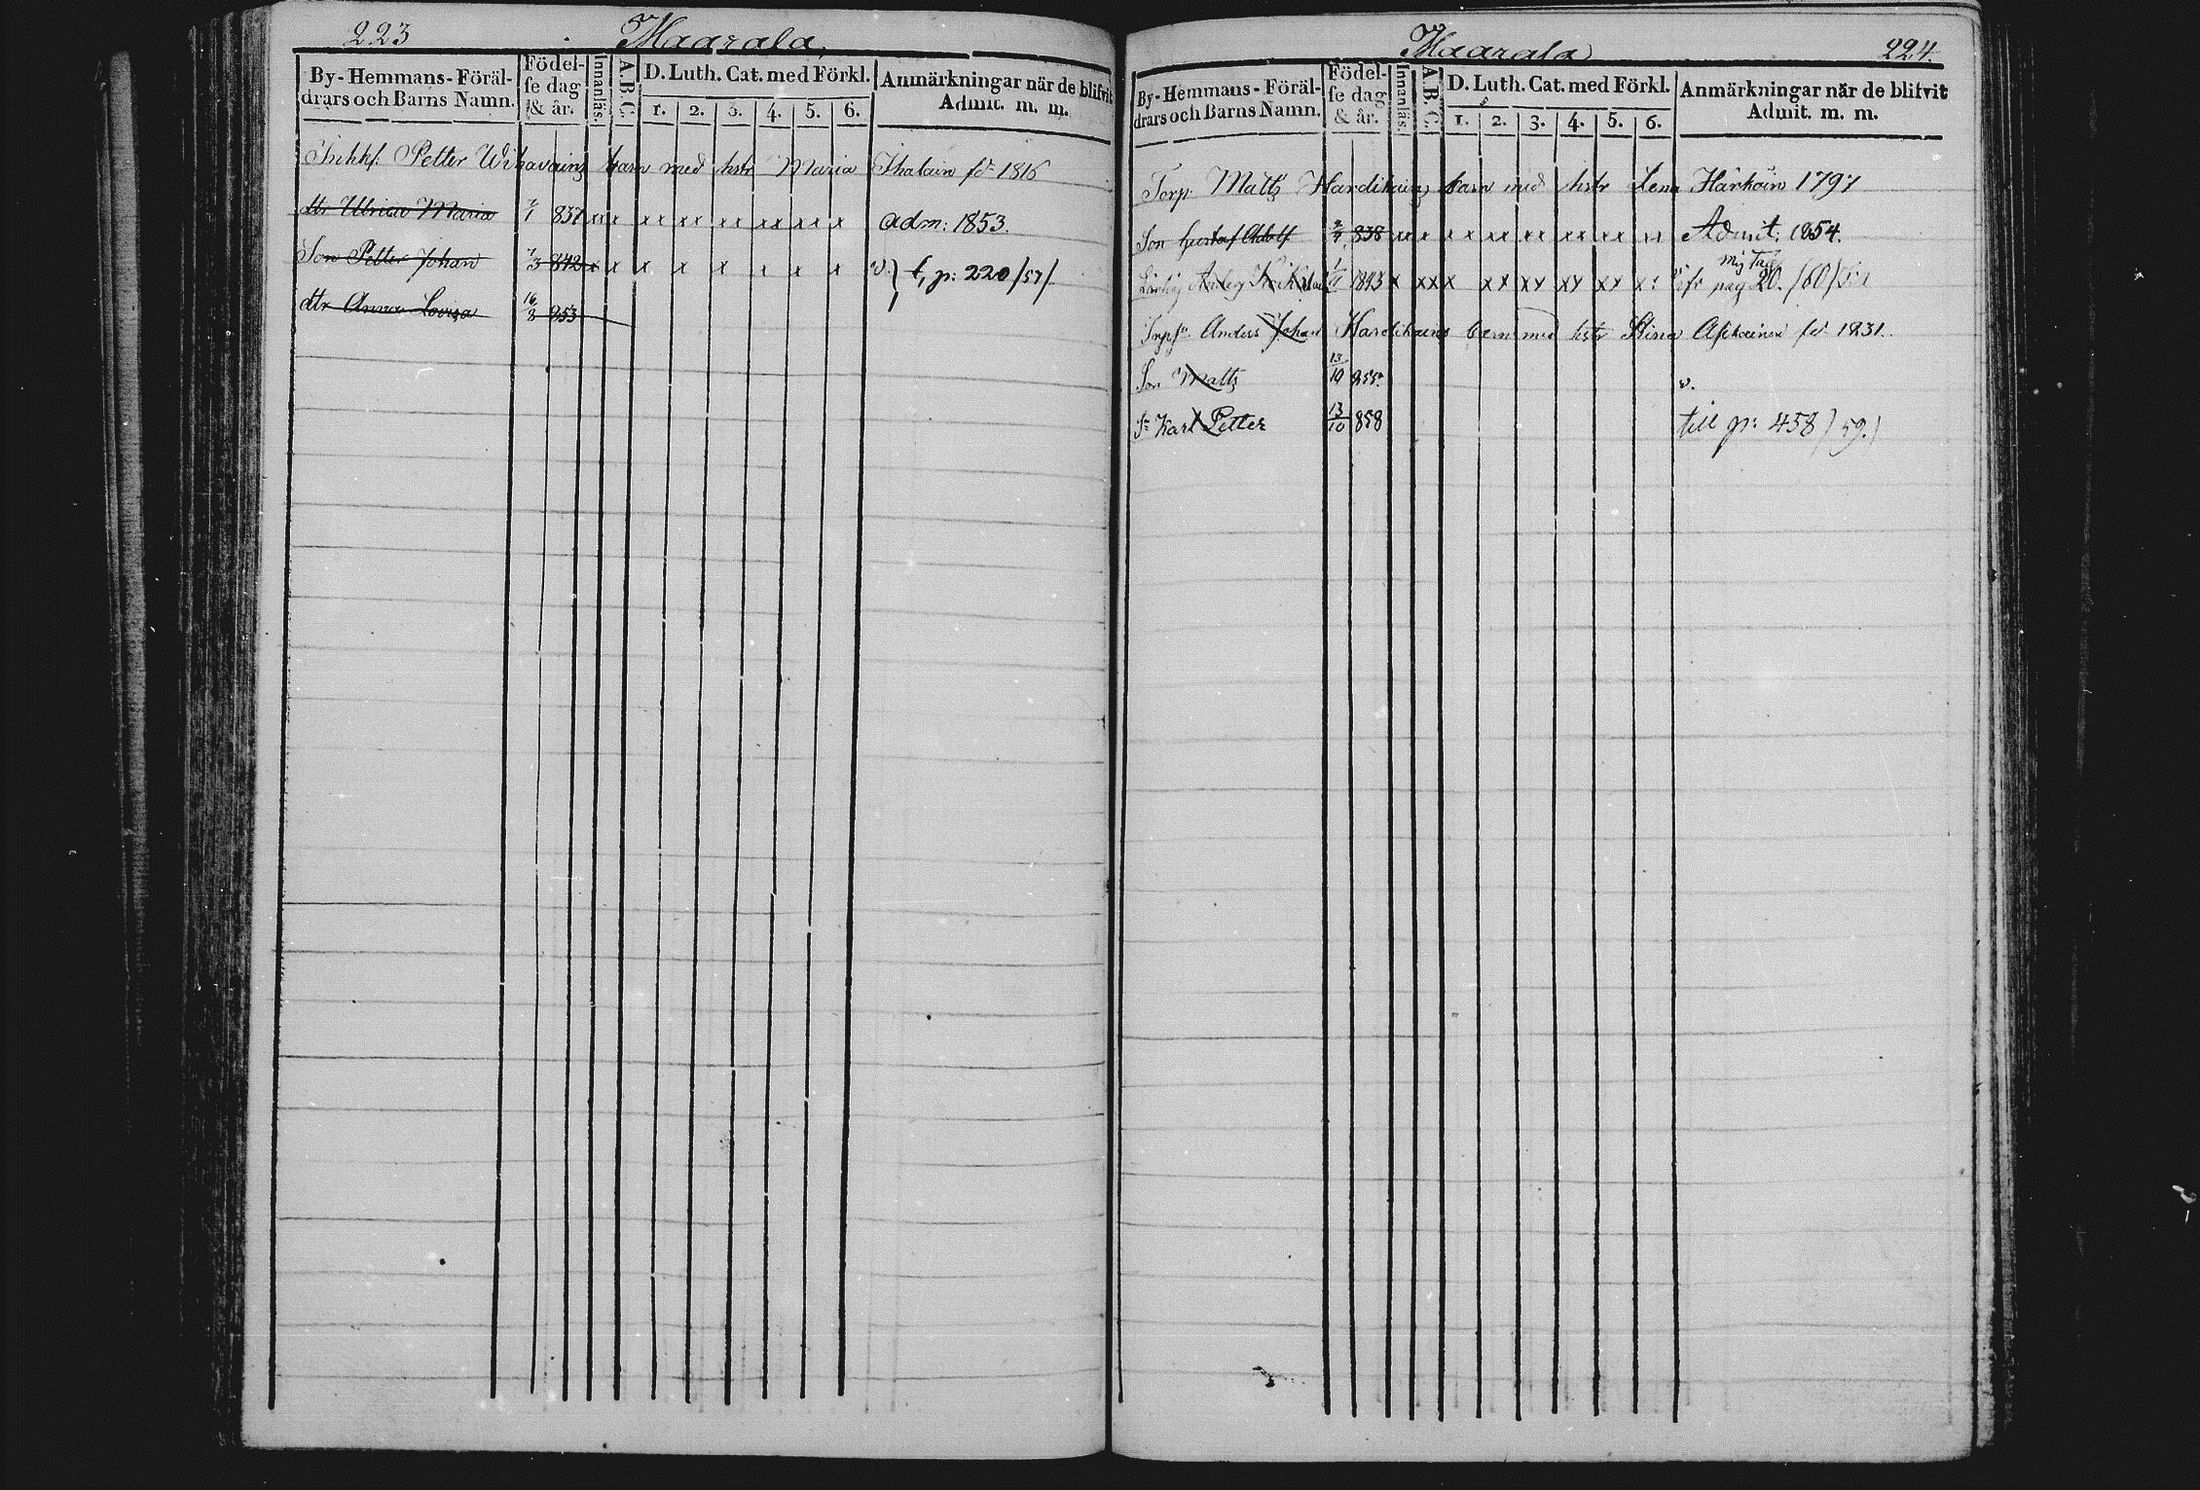 223 Maarala
By-Hemmans-Föräl-
drars och Barns Namn.
Födel-
se dag
& år.
Innanläs.
A.B.C.
D. Luth. Cat. med Förkl.
1. 2. 3. 4. 5. 6.
Anmärkningar när de blifvit
Admit. m. m.
Inhkf. Petter barn med hstr Maria Ihalain fd 1816
dtr Ulrica Maria 2/1 837 xx x xx xx xx xx xx x adm: 1853.
Son Petter Johan 7/3 842 x x x x x x x x v. f, p: 220/57/.
dtr Anna Lovisa 16/8 853
Maarala 224.
By-Hemmans-Föräl-
drars och Barns Namn.
Födel-
se dag
& år.
Innanläs.
A.B.C.
D. Luth. Cat. med Förkl.
1. 2. 3. 4. 5. 6.
Anmärkningar när de blifvit
Admit. m. m.
Torp. Matts Hardikains barn med hstr Lena Härköin 1797
Son Gustaf Adolf 838 xx x x x xx xx xx xx Admit. 1854.
1843 x xx x xx xx xx xx pag 20. /60/
Anders Johan Hardikains barn med hstr Stina fd 1831.
Son Matts 13/10 855. v.
Sn Karl Petter 13/10 858 till p: 458/59.)